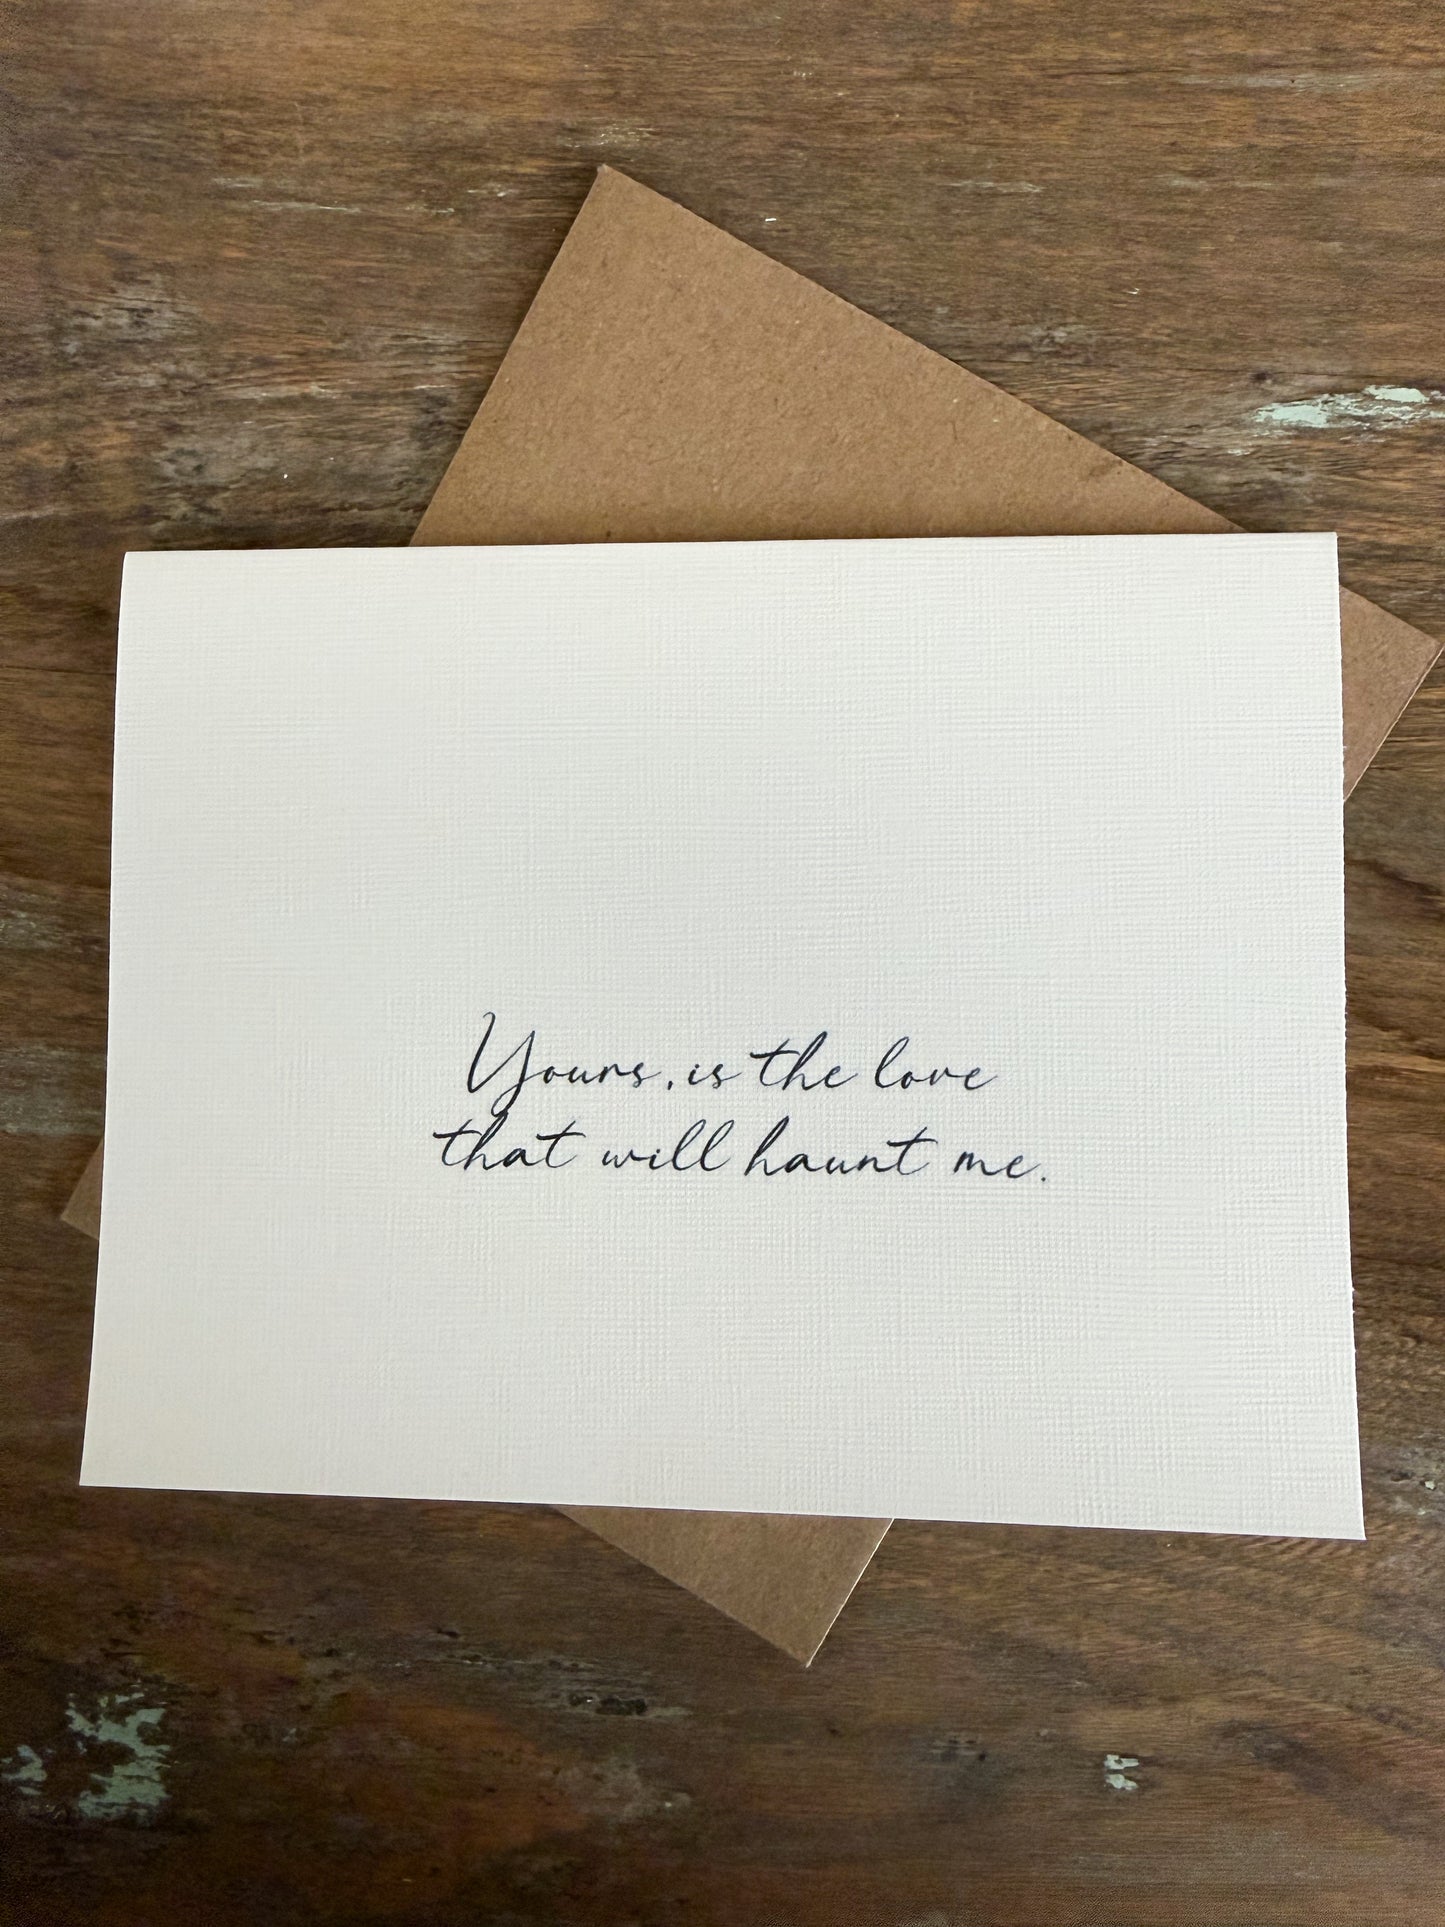 Yours, is the love
that will haunt me.